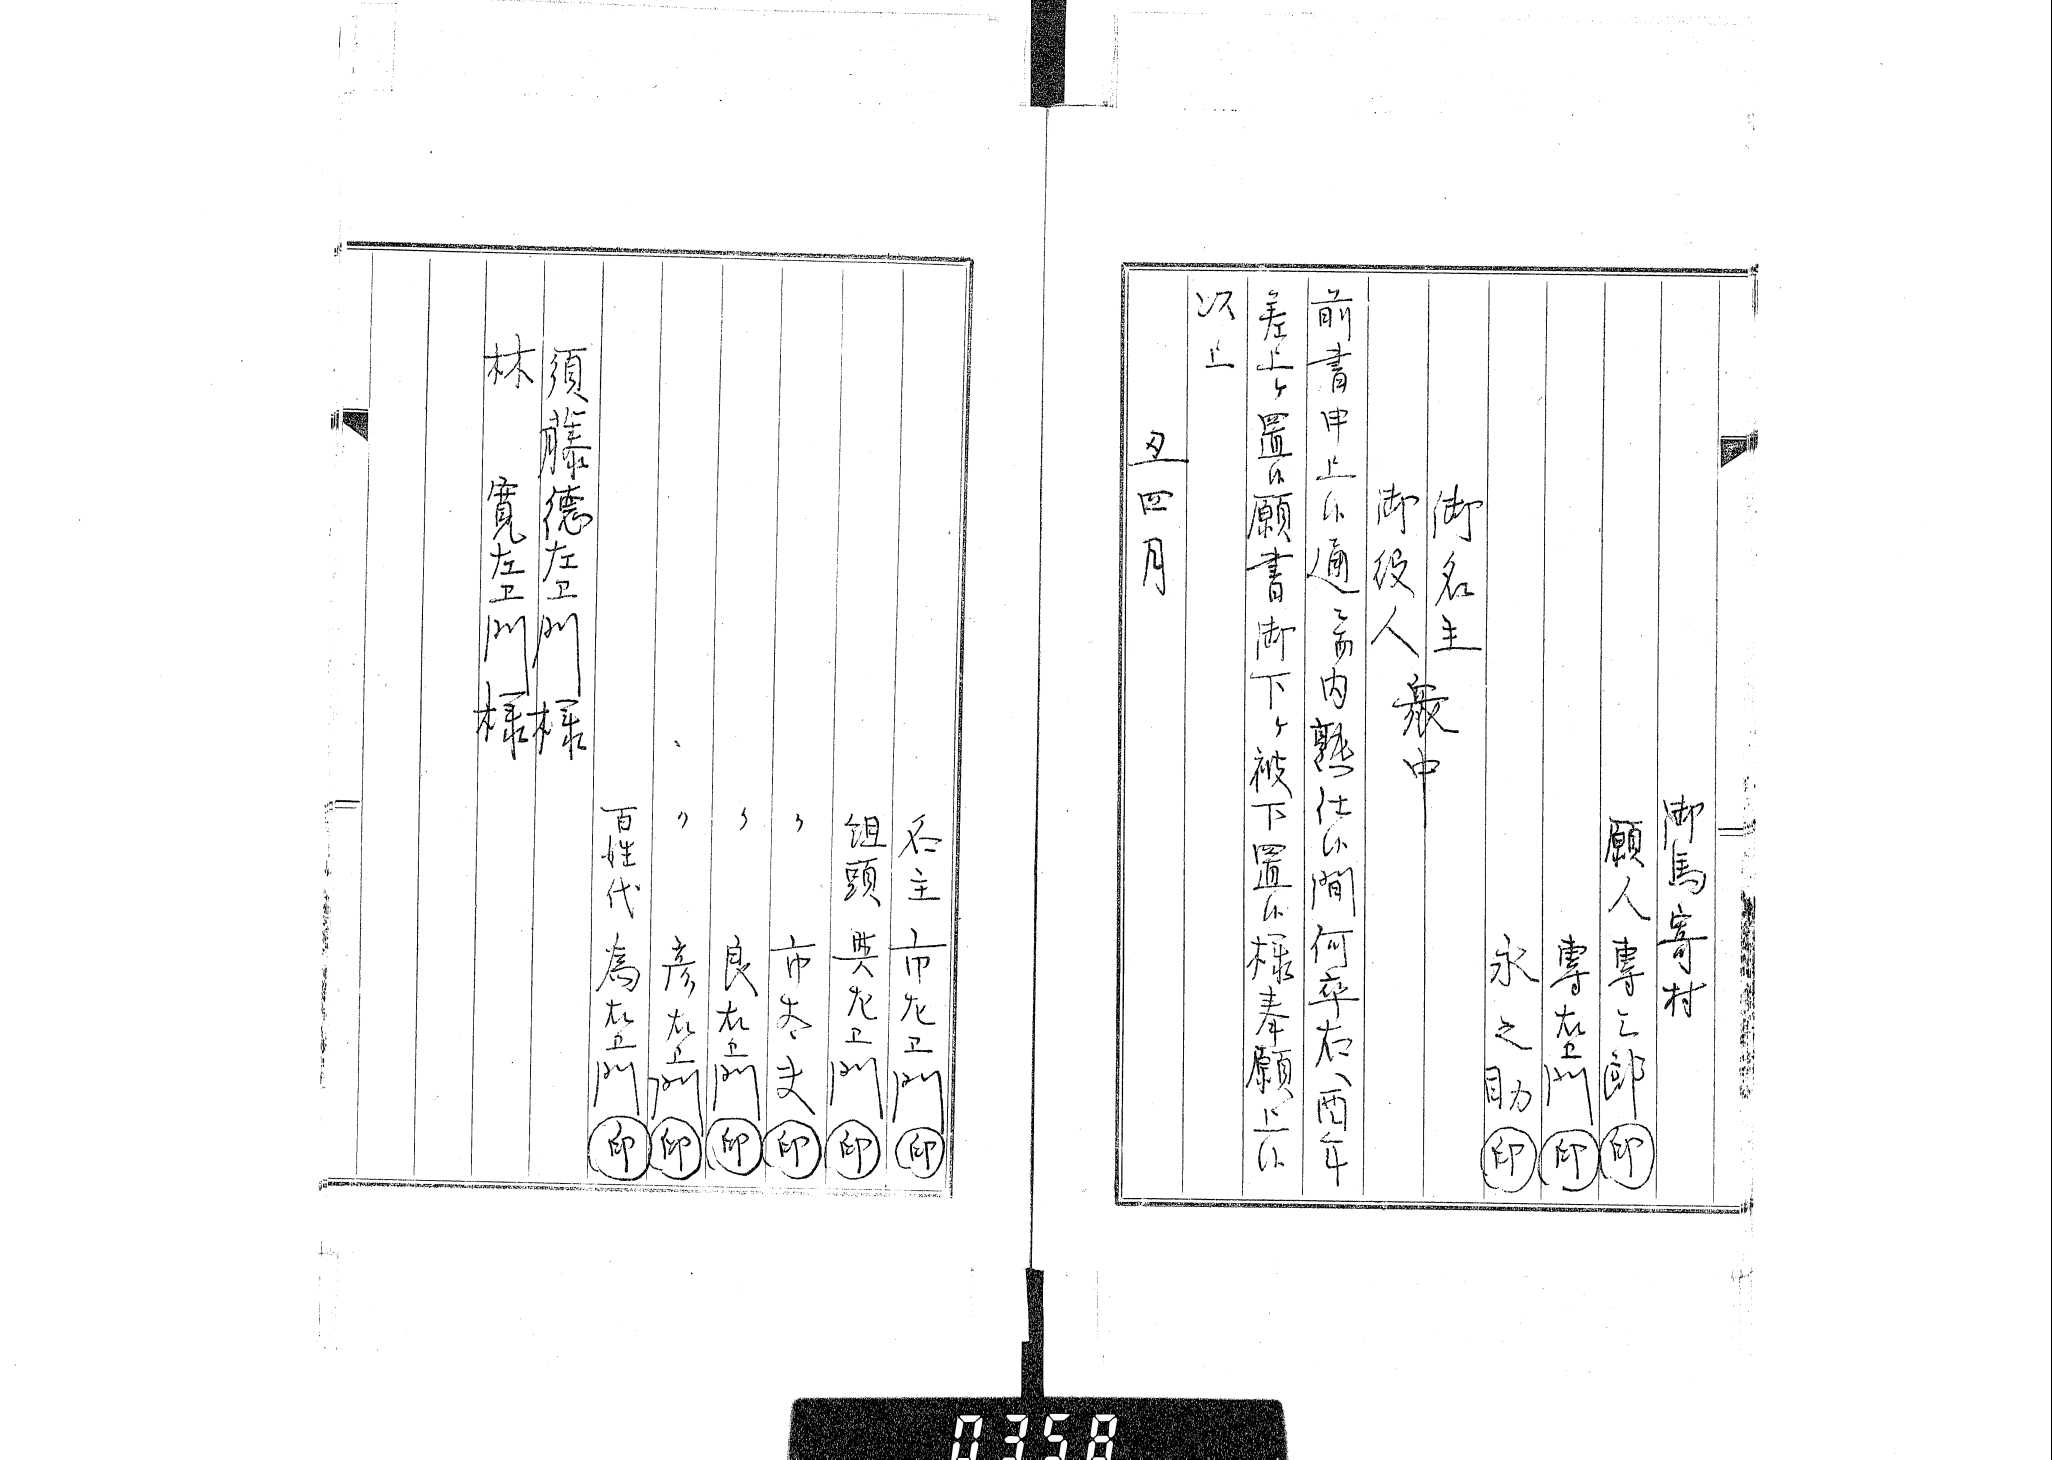 御馬寄村
願人 専三郎 印
専右衛門 印
永之助 印
御名主
御役人 衆中
前書申上候通り内熟仕候間何卒右酉年
差上ケ置候願書御下ケ被下置候様奉願上候
以上
丑四月
名主 市左衛門 印
組頭 與左衛門 印
〃 市太夫 印
〃 良右衛門 印
〃 彦右衛門 印
百姓代 為右衛門 印
須藤徳左衛門様
林 寛左衛門様
0358